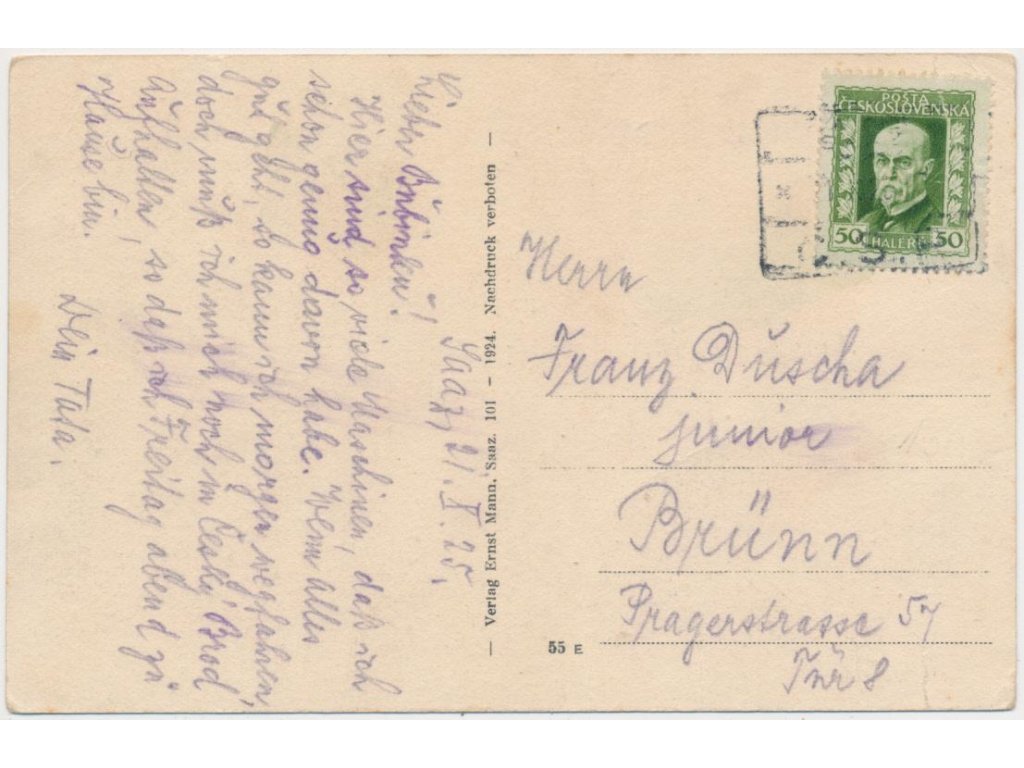 Saaz, 21. X. 25.
Liebes Bubinken!
Hier sind so viele Maschinen, daß ich
schon genug davon habe. Wenn alles
gut geht, so kann ich morgen wegfahren,
doch muß ich mich noch in Český Brod
aufhalten, so daß ich Freitag abend zu
Hause bin.
Dein Tata.
— Verlag Ernst Mann, Saaz. 101 — 1924. Nachdruck verboten —
55 E
POŠTA
ČESKOSLOVENSKÁ
50 HALÉŘŮ 50
Herrn
Franz Duscha
junior
Brünn
Pragerstrasse 57
Tür 8